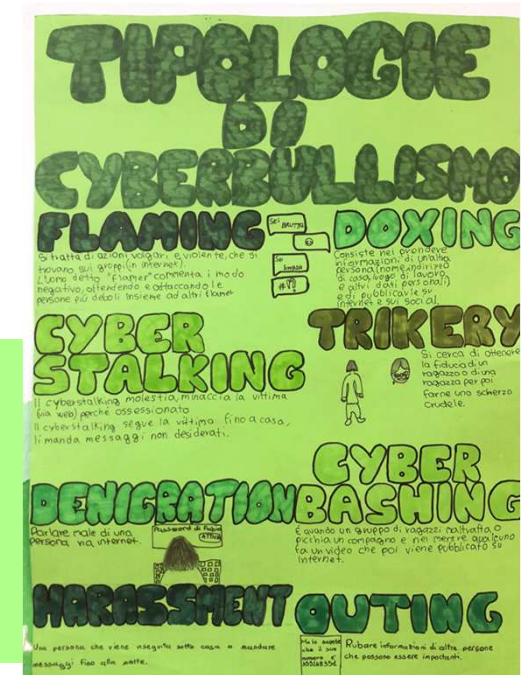 TIPOLOGIE
DI
CYBERBULLISMO
FLAMING
Si tratta di azioni volgari e violente, che si
trovano sui gruppi (in internet).
L'uomo detto "Flamer" commenta i modo
negativo, offendendo e attaccando le
persone più deboli insieme ad altri flamer
SEI BRUTTO
Sei
#@!
DOXING
Consiste nel prendere
informazioni di un'altra
persona (nome, indirizzo
di casa, luogo di lavoro
e altri dati personali)
e di pubblicarle su
internet e sui social.
CYBER
STALKING
Il cyberstalking molestia, minaccia la vittima
(via web) perché ossessionato
Il cyberstalking segue la vittima fino a casa,
li manda messaggi non desiderati.
TRIKERY
Si cerca di ottenere
la fiducia di un
ragazzo o di una
ragazza per poi
farne uno scherzo
crudele.
DENIGRATION
Parlare male di una
persona via internet.
Password di
CYBER
BASHING
È quando un gruppo di ragazzi maltratta o
picchia un compagno e nel mentre qualcuno
fa un video che poi viene pubblicato su
internet.
HARASSMENT
Una persona che viene inseguita sotto casa o mandare
messaggi fino alla notte.
OUTING
che il suo
numero è
Rubare informazioni di altre persone
che possono essere importanti.